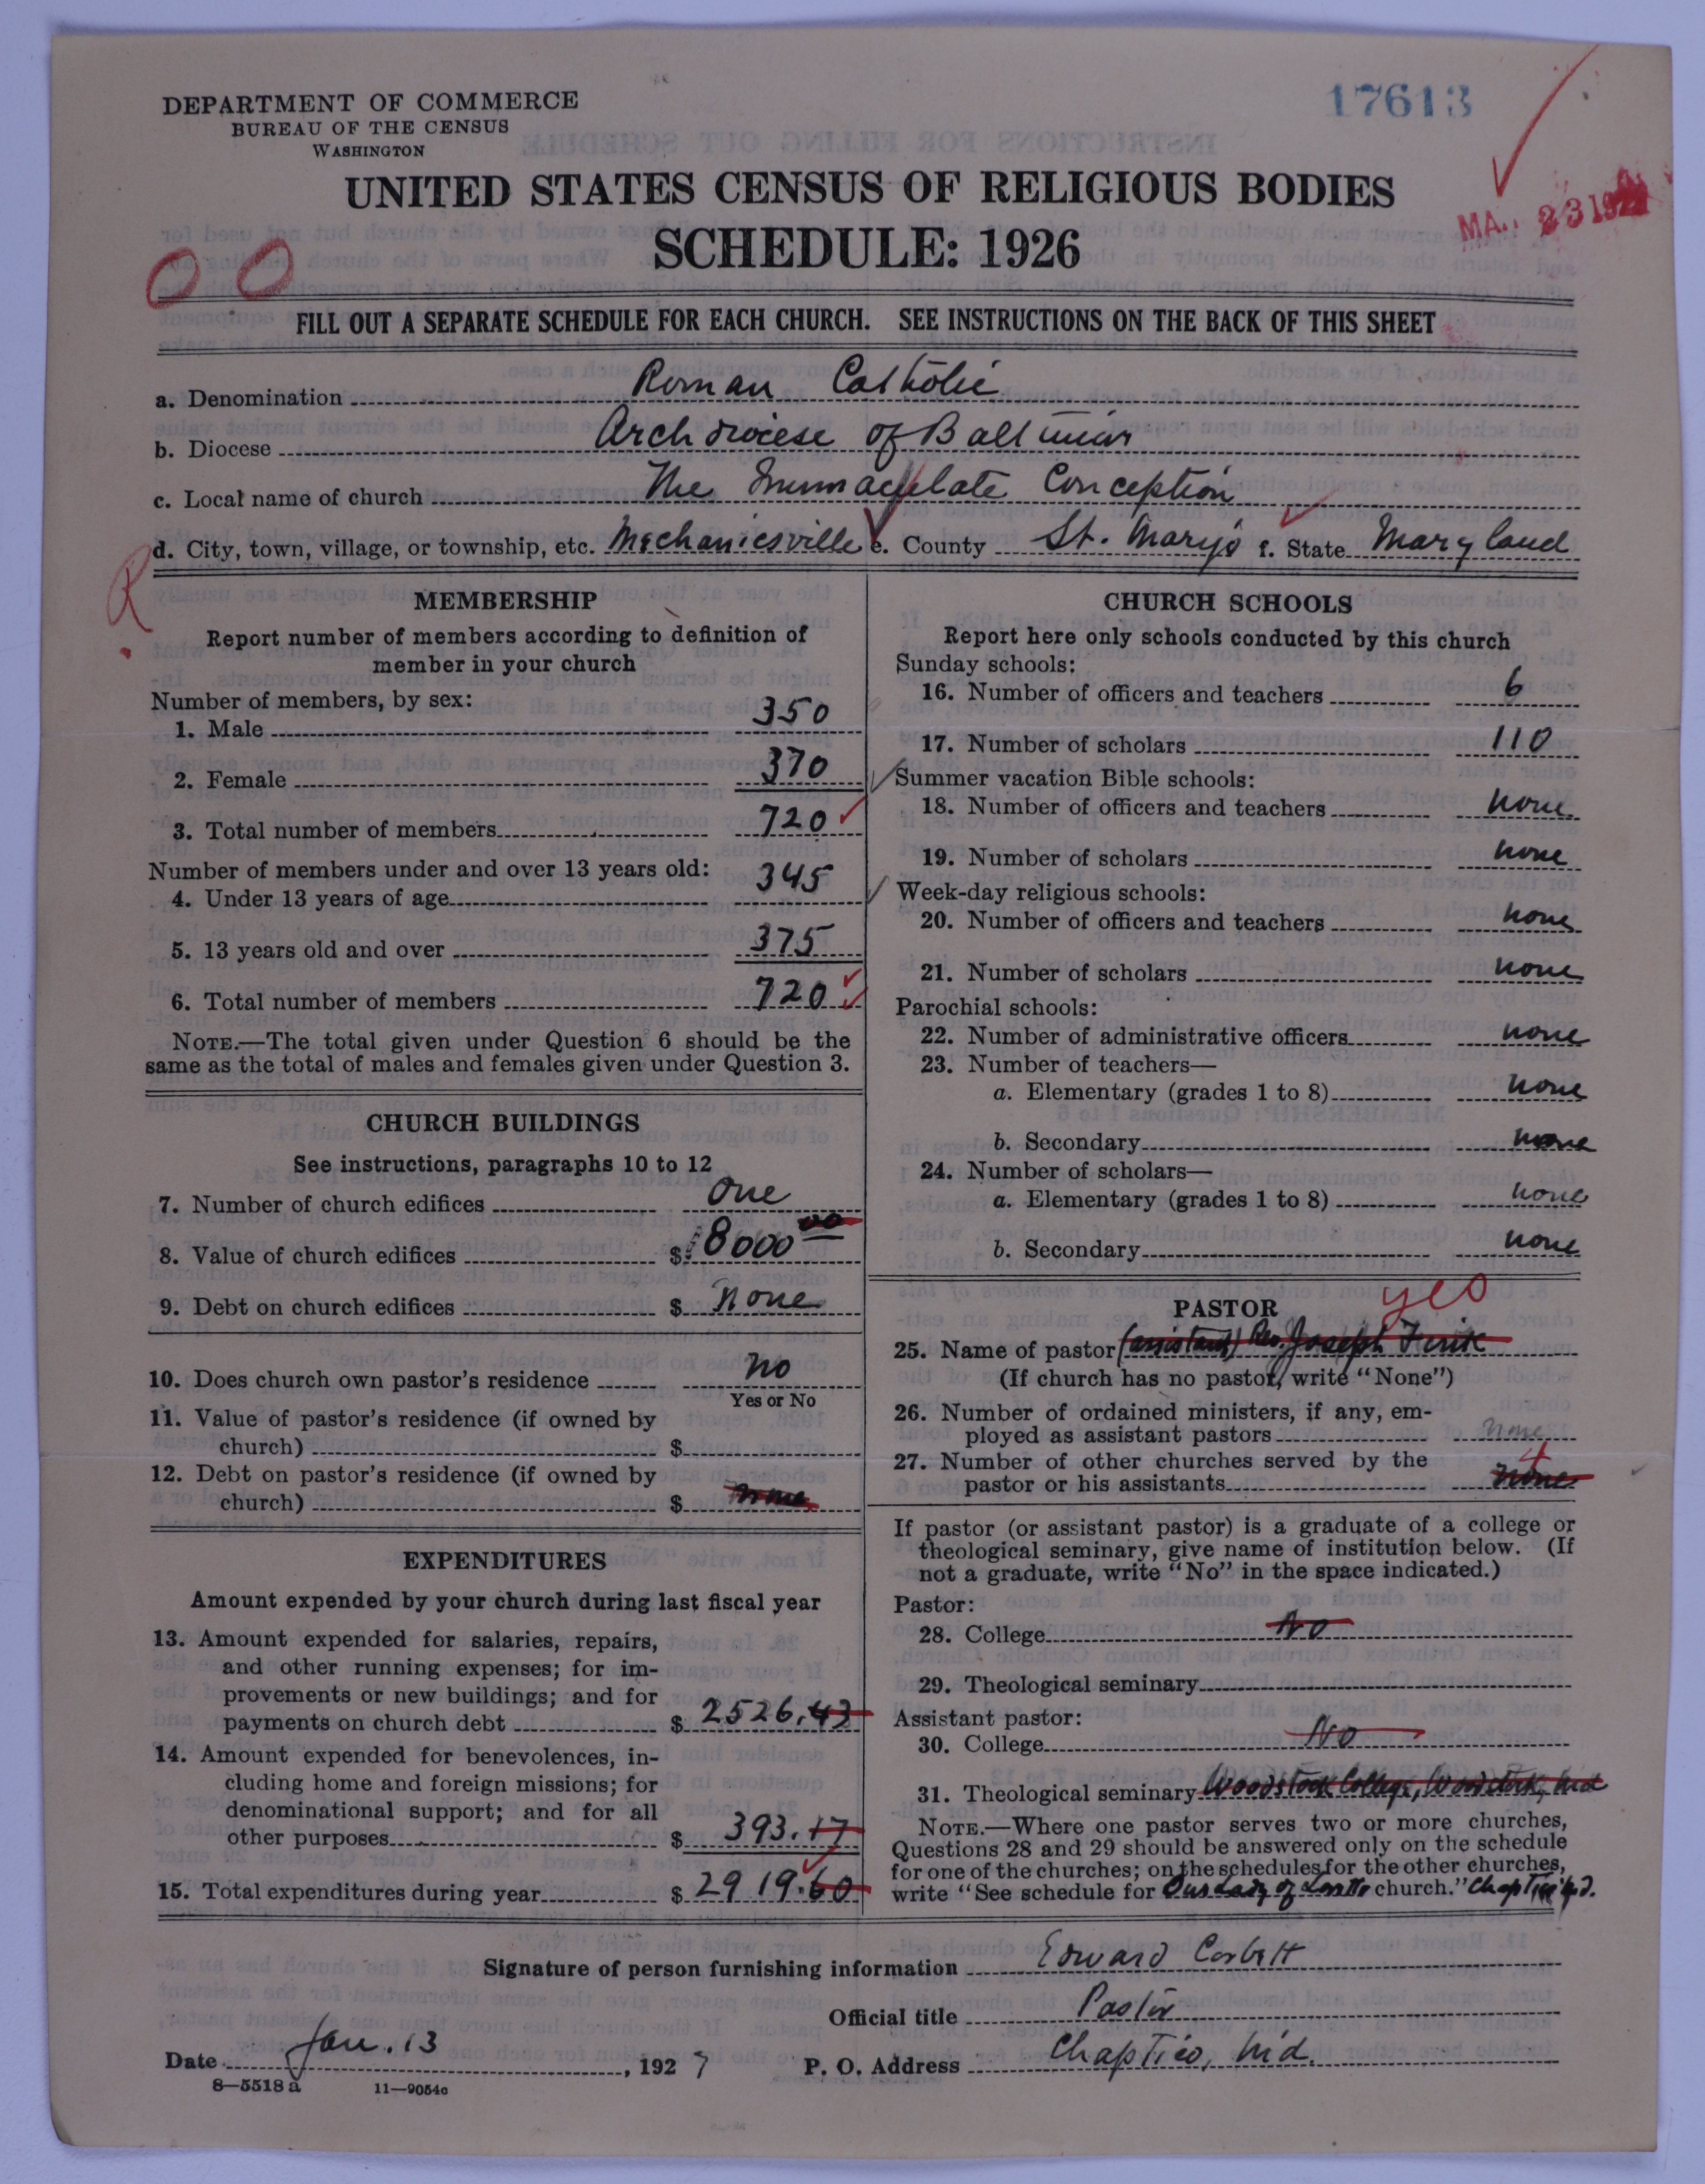 DEPARTMENT OF COMMERCE
BUREAU OF THE CENSUS
WASHINGTON
17613
UNITED STATES CENSUS OF RELIGIOUS BODIES
SCHEDULE: 1926
MA. 23 192
00
FILL OUT A SEPARATE SCHEDULE FOR EACH CHURCH. SEE INSTRUCTIONS ON THE BACK OF THIS SHEET
a. Denomination Roman Catholic
b. Diocese Archdiocese of Baltimore
c. Local name of church The Immaculate Conception
d. City, town, village, or township, etc. Mechanicsville e. County St. Mary's f. State Maryland
R
MEMBERSHIP
Report number of members according to definition of
member in your church
Number of members, by sex:
1. Male 350
2. Female 370
3. Total number of members 720
Number of members under and over 13 years old:
4. Under 13 years of age 345
5. 13 years old and over 375
6. Total number of members 720
NOTE.—The total given under Question 6 should be the
same as the total of males and females given under Question 3.
CHURCH BUILDINGS
See instructions, paragraphs 10 to 12
7. Number of church edifices one
8. Value of church edifices $ 18000 00
9. Debt on church edifices $ None
10. Does church own pastor's residence No
Yes or No
11. Value of pastor's residence (if owned by
church) $
12. Debt on pastor's residence (if owned by
church) $ none
EXPENDITURES
Amount expended by your church during last fiscal year
13. Amount expended for salaries, repairs,
and other running expenses; for im-
provements or new buildings; and for
payments on church debt $ 2526.43
14. Amount expended for benevolences, in-
cluding home and foreign missions; for
denominational support; and for all
other purposes $ 393.17
15. Total expenditures during year $ 2919.60
CHURCH SCHOOLS
Report here only schools conducted by this church
Sunday schools:
16. Number of officers and teachers 6
17. Number of scholars 110
Summer vacation Bible schools:
18. Number of officers and teachers none
19. Number of scholars none
Week-day religious schools:
20. Number of officers and teachers none
21. Number of scholars none
Parochial schools:
22. Number of administrative officers none
23. Number of teachers—
a. Elementary (grades 1 to 8) none
b. Secondary none
24. Number of scholars—
a. Elementary (grades 1 to 8) none
b. Secondary none
PASTOR yes
25. Name of pastor (assistant) Rev. Joseph
(If church has no pastor, write "None")
26. Number of ordained ministers, if any, em-
ployed as assistant pastors none
27. Number of other churches served by the 4
pastor or his assistants none
If pastor (or assistant pastor) is a graduate of a college or
theological seminary, give name of institution below. (If
not a graduate, write "No" in the space indicated.)
Pastor:
28. College No
29. Theological seminary
Assistant pastor:
30. College No
31. Theological seminary Woodstock College, Woodstock, Md
NOTE.—Where one pastor serves two or more churches,
Questions 28 and 29 should be answered only on the schedule
for one of the churches; on the schedules for the other churches,
write "See schedule for Our Lady of Loretto church." Chaptico Md.
Signature of person furnishing information Edward Corbett
Official title Pastor
Date Jan. 13, 1927 P. O. Address Chaptico, Md.
8—5518 a 11—9054c